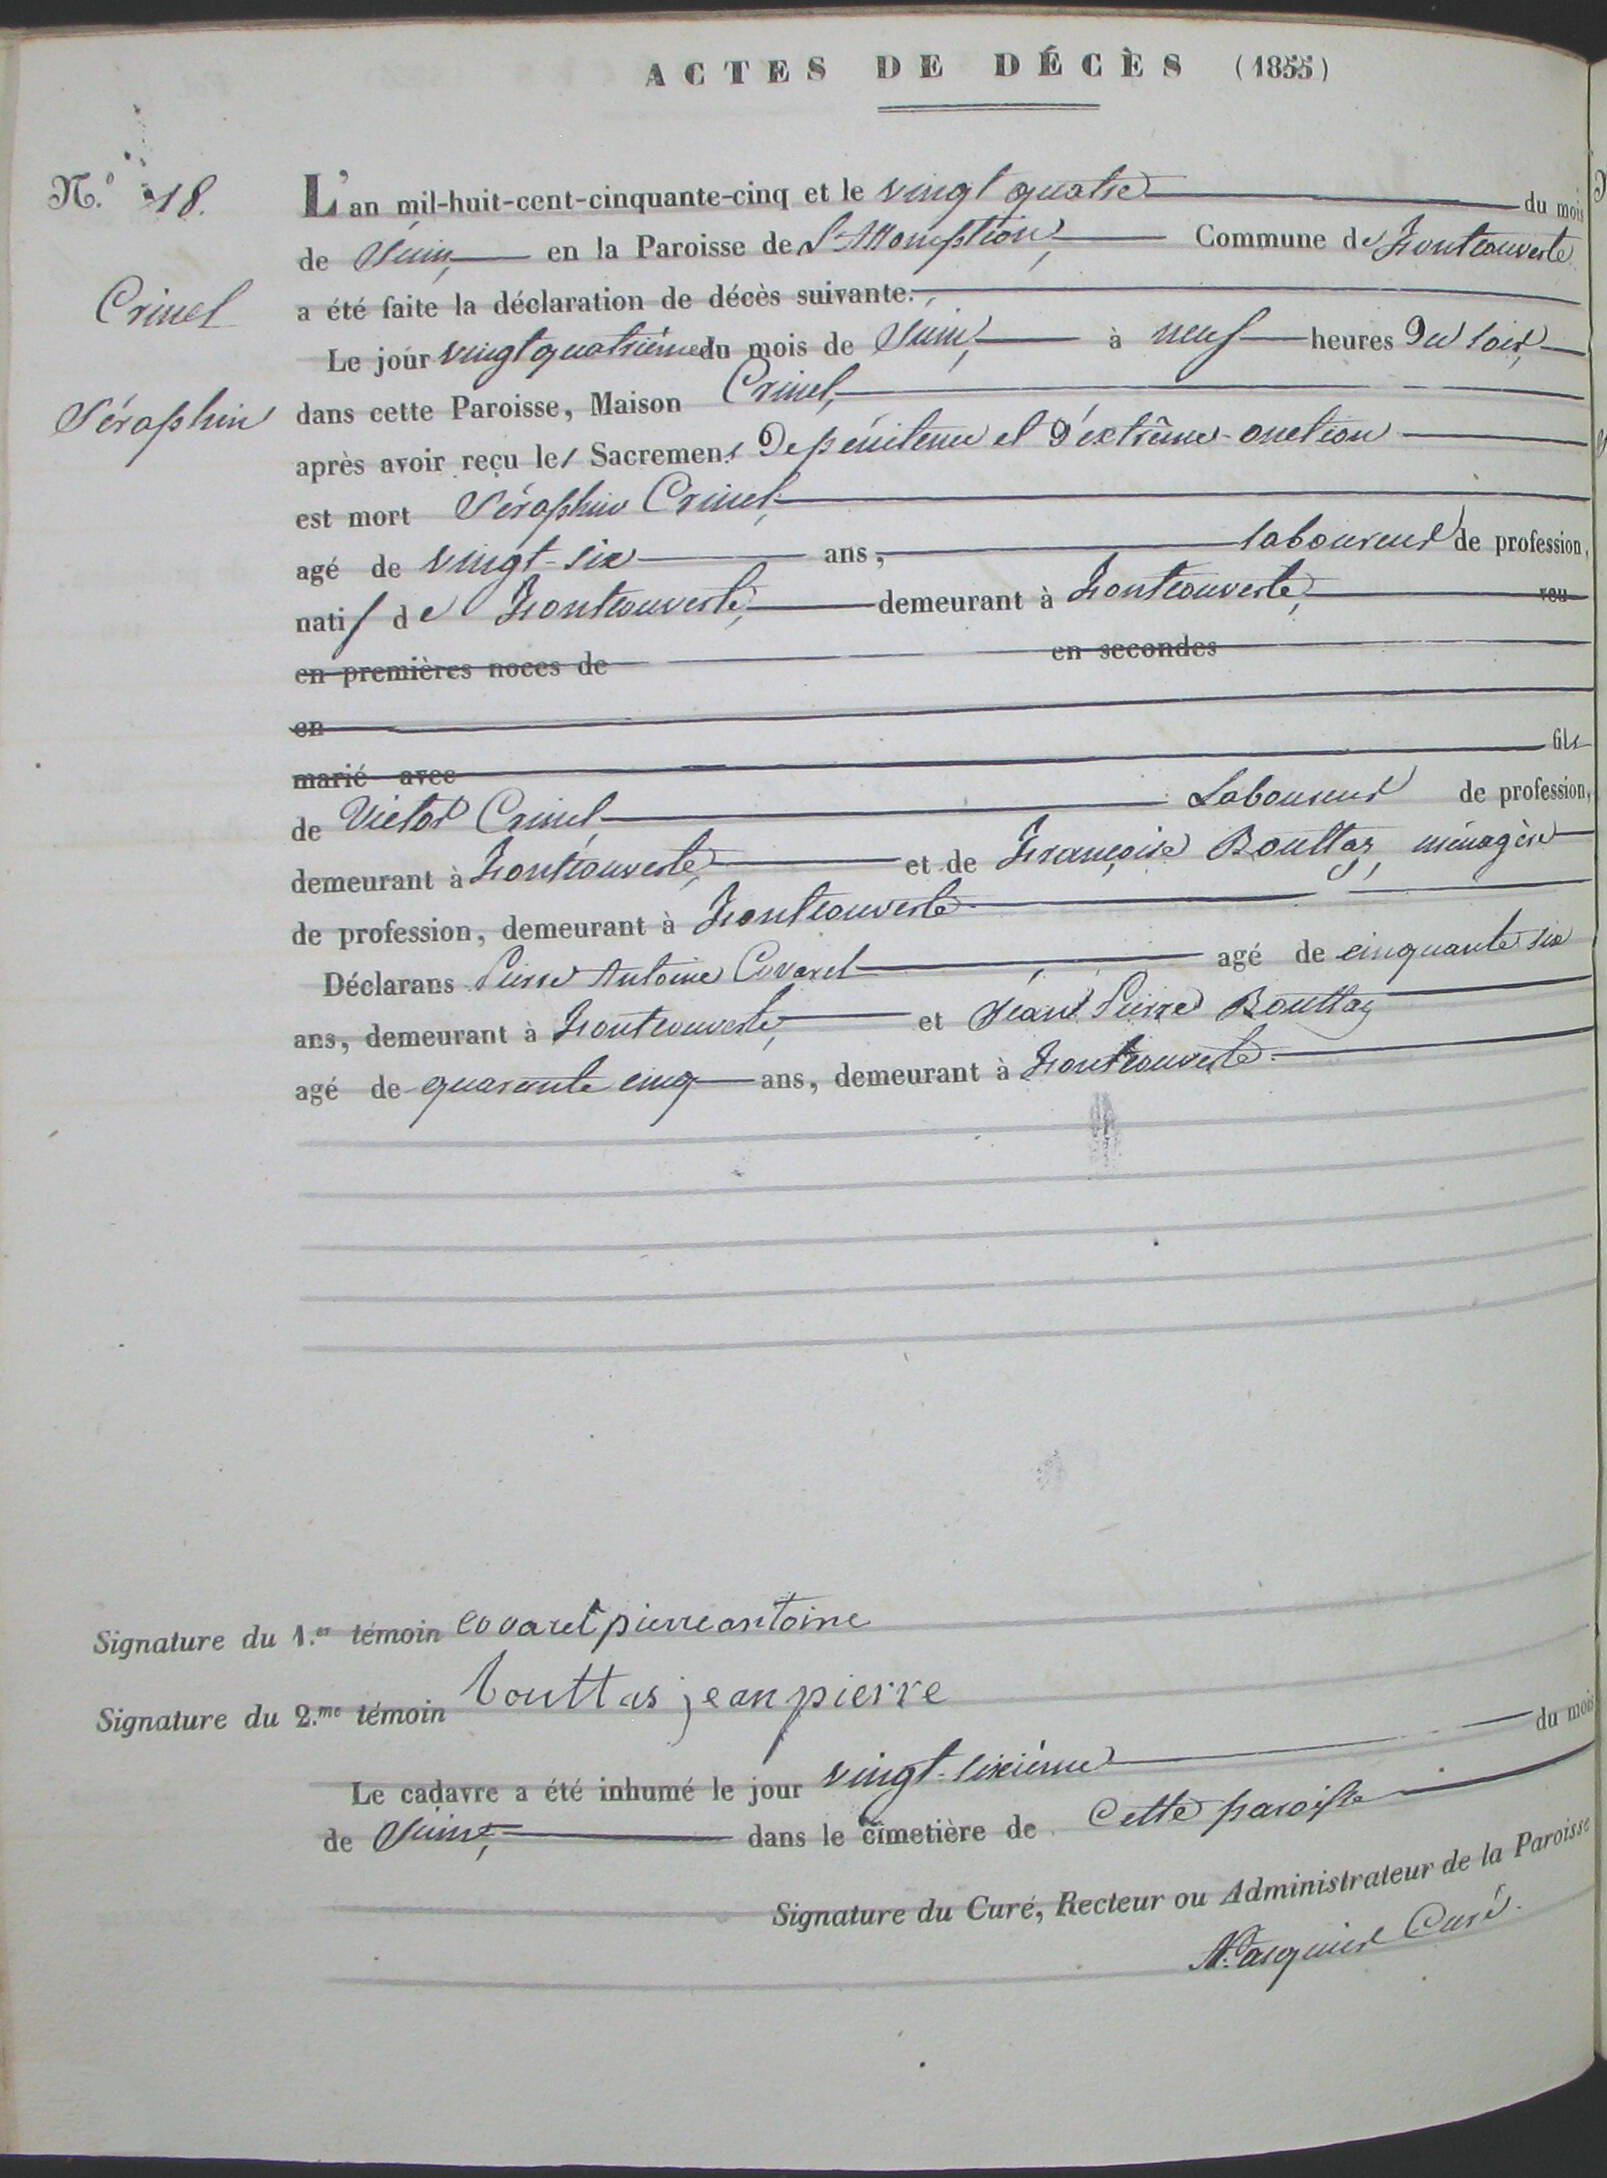 ACTES DE DÉCÈS (1855)
N.º 18.
L'an mil-huit-cent-cinquante-cinq et le vingt quatre du mois
de Juin, en la Paroisse de l'Assomption, Commune de Fontcouverte
Crinel
a été faite la déclaration de décès suivante.
Le jour vingt quatrième du mois de Juin, à neuf heures du soir,
Séraphin
dans cette Paroisse, Maison Crinel,
après avoir reçu les Sacremens de pénitence et d'extrême-onction
est mort Séraphin Crinel,
agé de vingt-six ans, laboureur de profession,
natif de Fontcouverte, demeurant à Fontcouverte, veu
en premières noces de en secondes
en
marié avec fils
de Victor Crinel, Laboureur de profession,
demeurant à Fontcouverte, et de Françoise Bouttaz, ménagère
de profession, demeurant à Fontcouverte
Déclarans Pierre Antoine Covarel agé de cinquante six
ans, demeurant à Fontcouverte, et Jean Pierre Bouttaz
agé de quarante cinq ans, demeurant à Fontcouverte.
Signature du 1.er témoin covarel pierre antoine
Signature du 2.me témoin bouttas jean pierre
Le cadavre a été inhumé le jour vingt-sixième du mois
de Juin, dans le cimetière de Cette paroisse
Signature du Curé, Recteur ou Administrateur de la Paroisse
Curé.